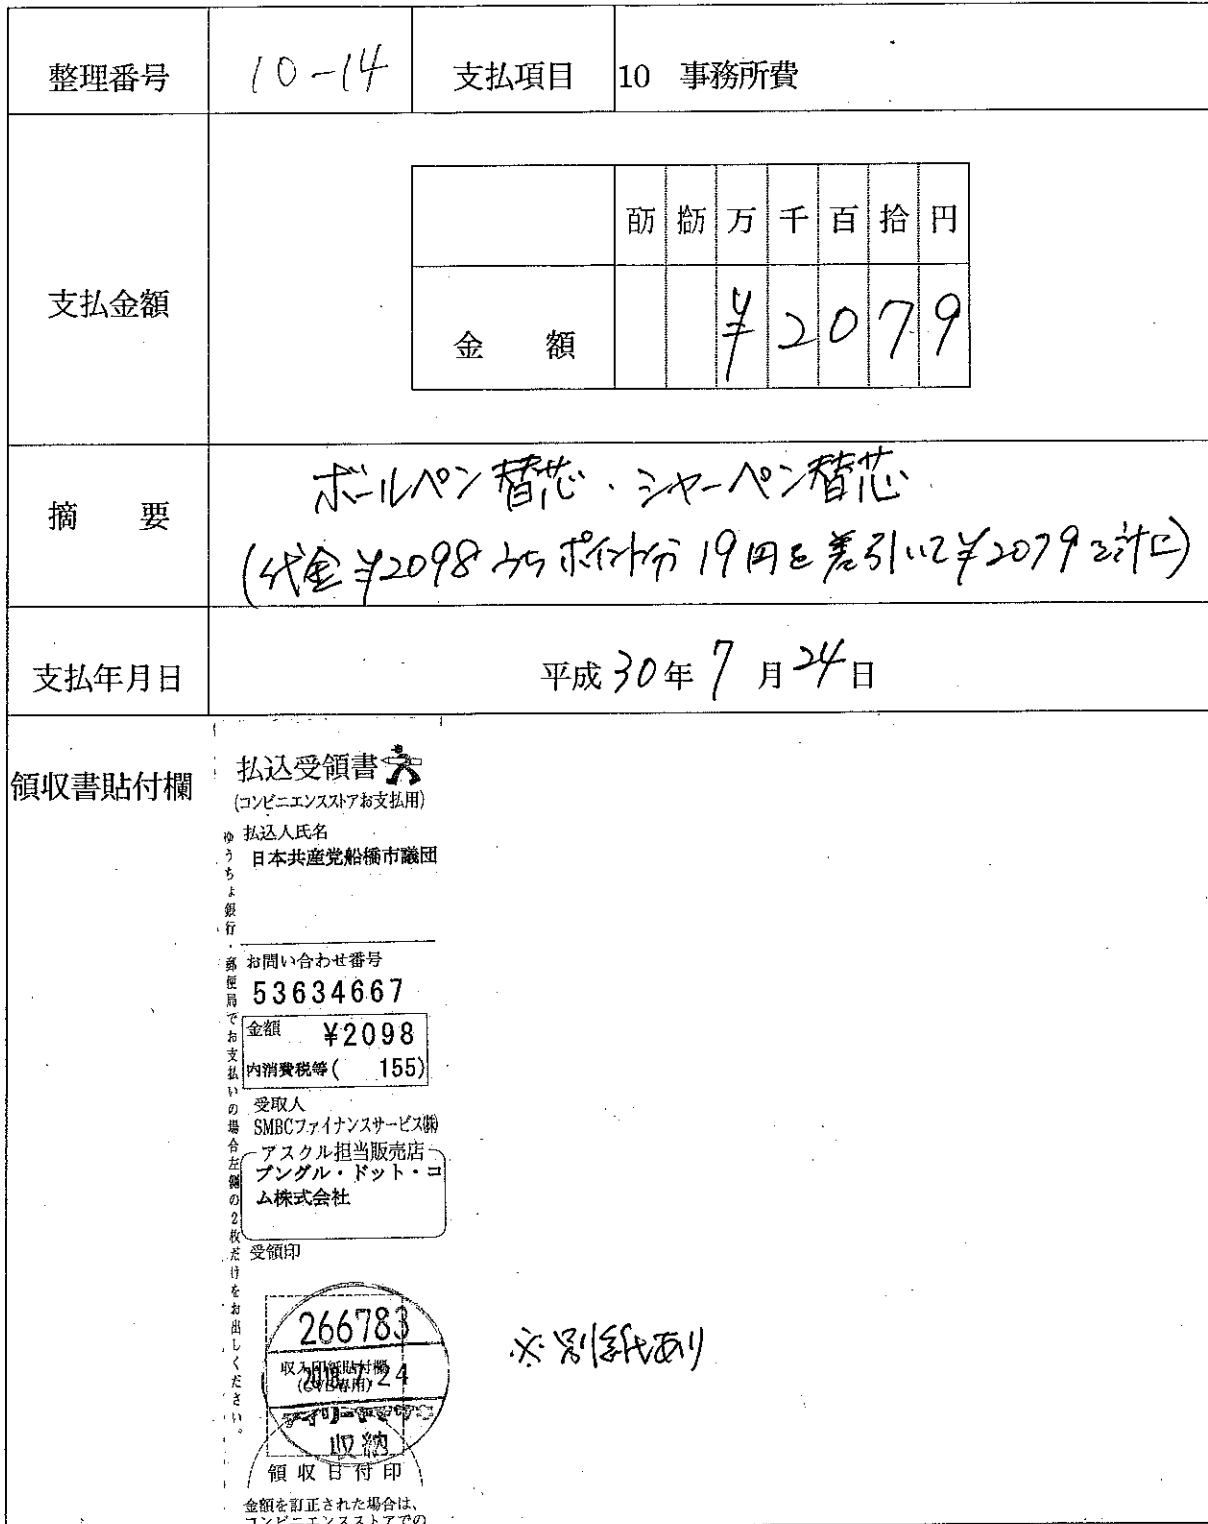 整理番号 10-14 支払項目 10 事務所費
百万 拾万 万 千 百 拾 円
支払金額
金 額 ¥2079
摘 要
ボールペン替芯・シャーペン替芯
(代金¥2098うちポイント分19円を差引いて¥2079を計上)
支払年月日 平成30年7月24日
領収書貼付欄
払込受領書
(コンビニエンスストアお支払用)
払込人氏名
日本共産党船橋市議団
ゆうちょ銀行・郵便局でお支払いの場合左側の2枚だけをお出しください。
お問い合わせ番号
53634667
金額 ¥2098
内消費税等( 155)
受取人
SMBCファイナンスサービス㈱
アスクル担当販売店
ブングル・ドット・コ
ム株式会社
受領印
266783
収入印紙貼付欄
2018.7.24
収納
領収日付印
※別紙あり
金額を訂正された場合は、
コンビニエンスストアでの